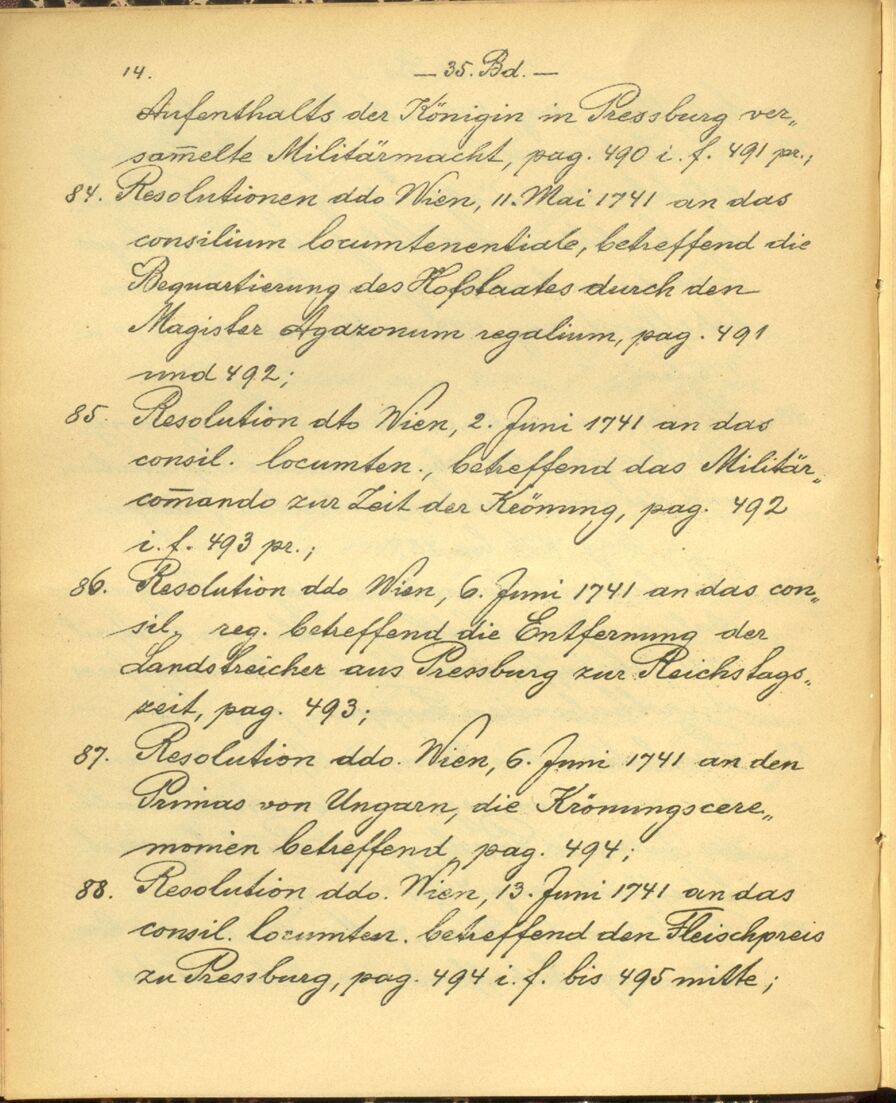 14.
— 35. Bd. —
Aufenthalts der Königin in Pressburg ver„
sam̄elte Militärmacht, pag. 490 i. f. 491 pr.;
84. Resolutionen ddo Wien, 11. Mai 1741 an das
consilium locumtenentiale, betreffend die
Bequartierung des Hofstaates durch den
Magister Agazonum regalium, pag. 491
und 492;
85. Resolution dto Wien, 2. Juni 1741 an das
consil. locumten., betreffend das Militär„
com̄ando zur Zeit der Krönung, pag. 492
i. f. 493 pr.;
86. Resolution ddo Wien, 6. Juni 1741 an das con„
sil. reg. betreffend die Entfernung der
Landstreicher aus Pressburg zur Reichstags„
zeit, pag. 493;
87. Resolution ddo. Wien, 6. Juni 1741 an den
Primas von Ungarn, die Krönungscere„
monien betreffend, pag. 494;
88. Resolution ddo. Wien, 13. Juni 1741 an das
consil. locumten. betreffend den Fleischpreis
zu Pressburg, pag. 494 i. f. bis 495 mitte;